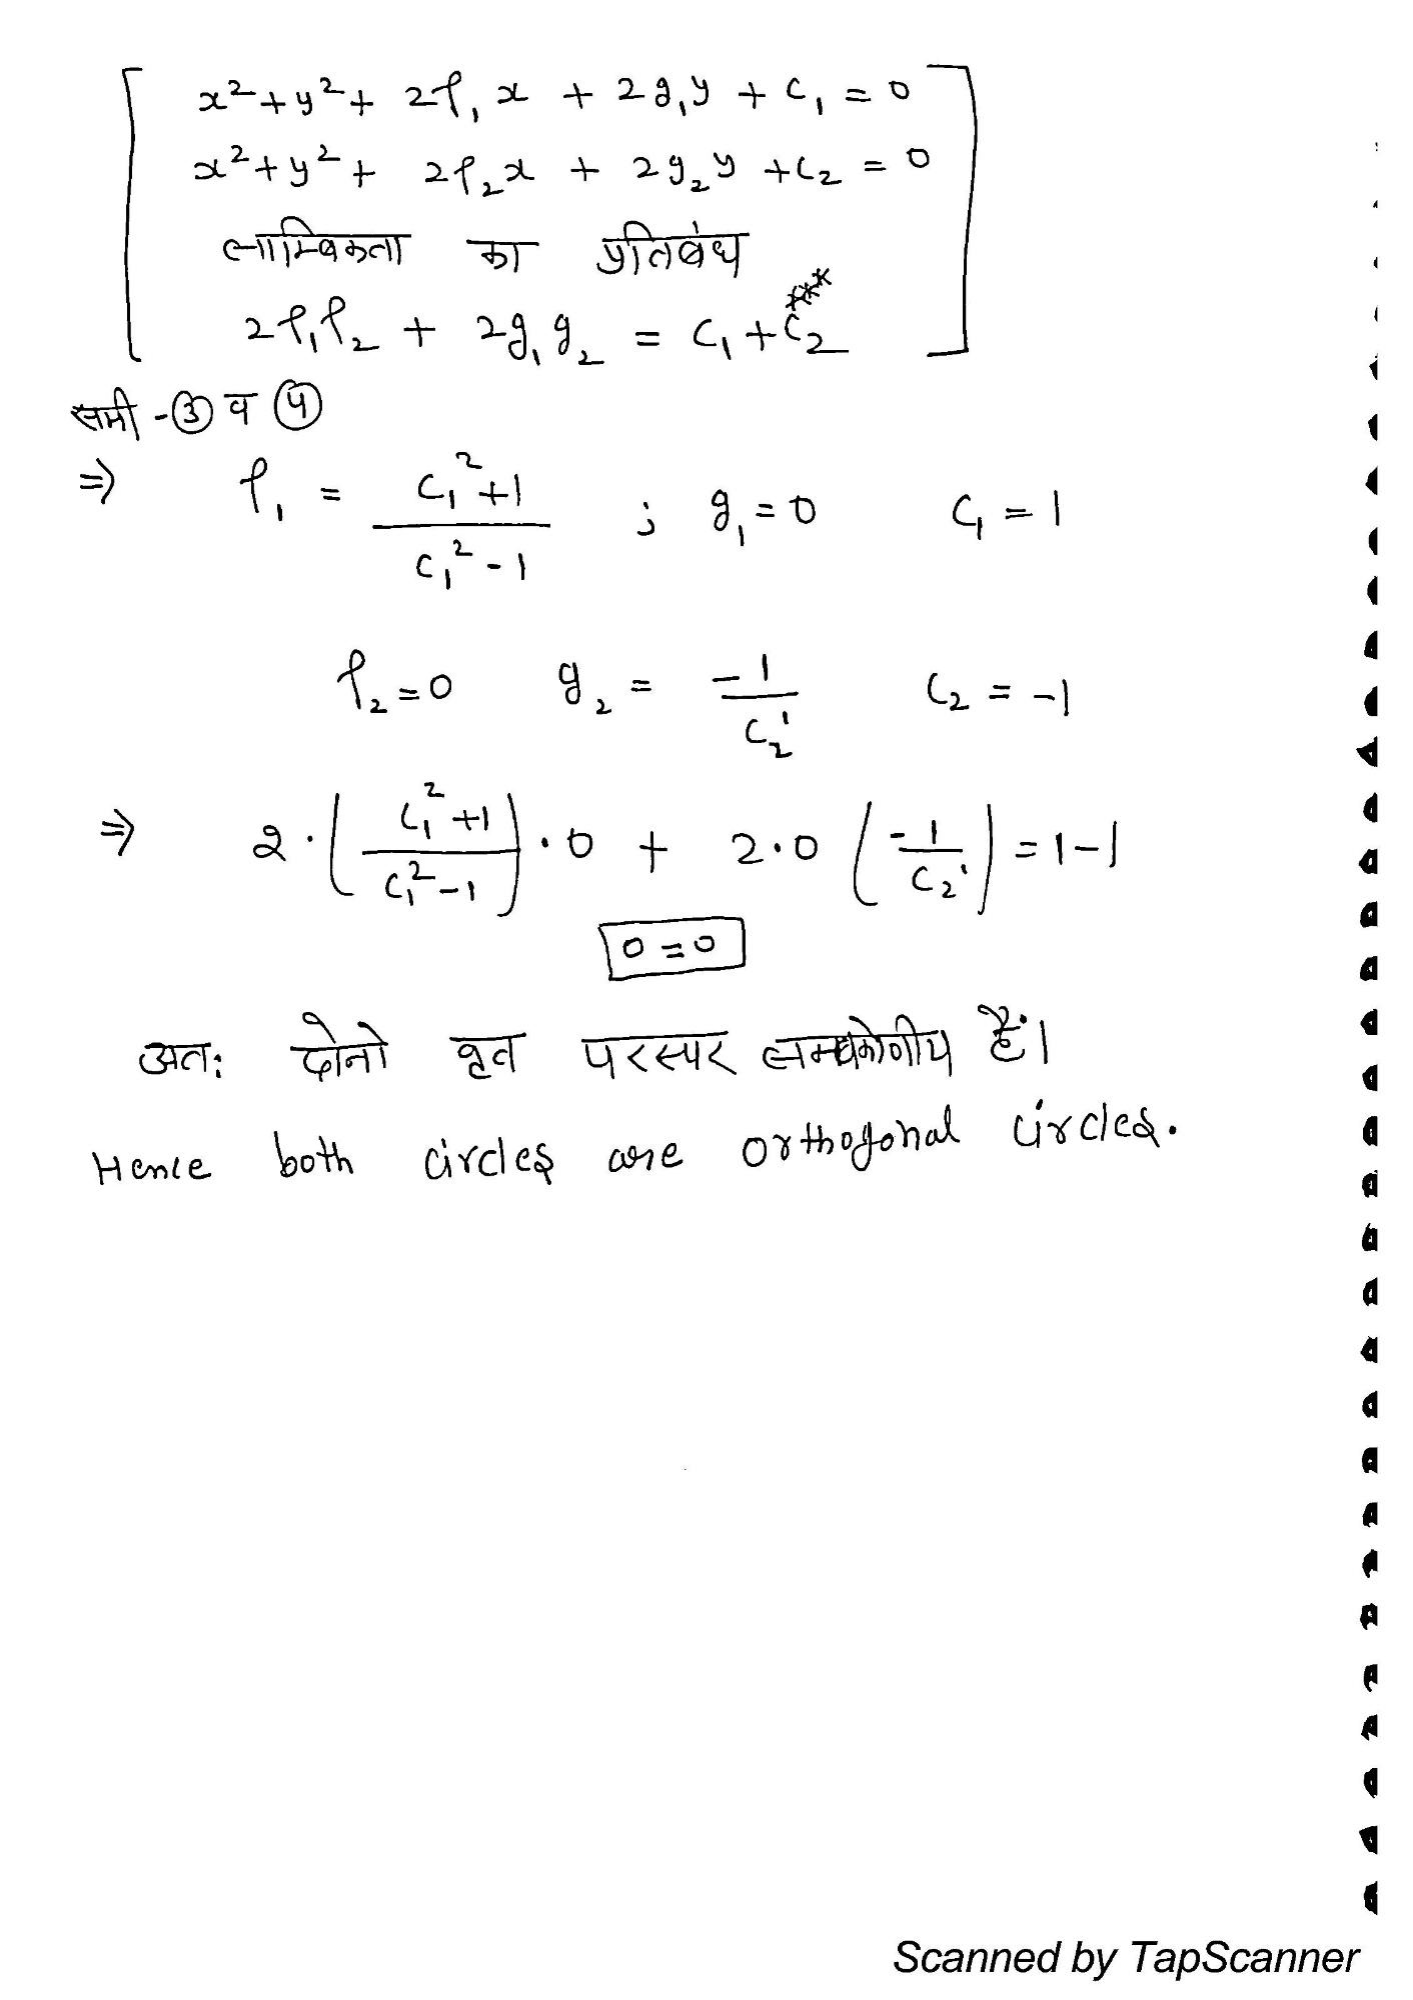 x² + y² + 2f₁x + 2g₁y + c₁ = 0
x² + y² + 2f₂x + 2g₂y + c₂ = 0
लाम्बिकता का प्रतिबंध
***
2f₁f₂ + 2g₁g₂ = c₁ + c₂
समी - ③ व ④
⇒ f₁ = (c₁² + 1)/(c₁² - 1) ; g₁ = 0 c₁ = 1
f₂ = 0 g₂ = -1/c₂' c₂ = -1
⇒ 2·((c₁² + 1)/(c₁² - 1))·0 + 2·0 (-1/c₂') = 1 - 1
0 = 0
अतः दोनो वृत परस्पर लम्बकोणीय हैं।
Hence both circles are orthogonal circles.
Scanned by TapScanner